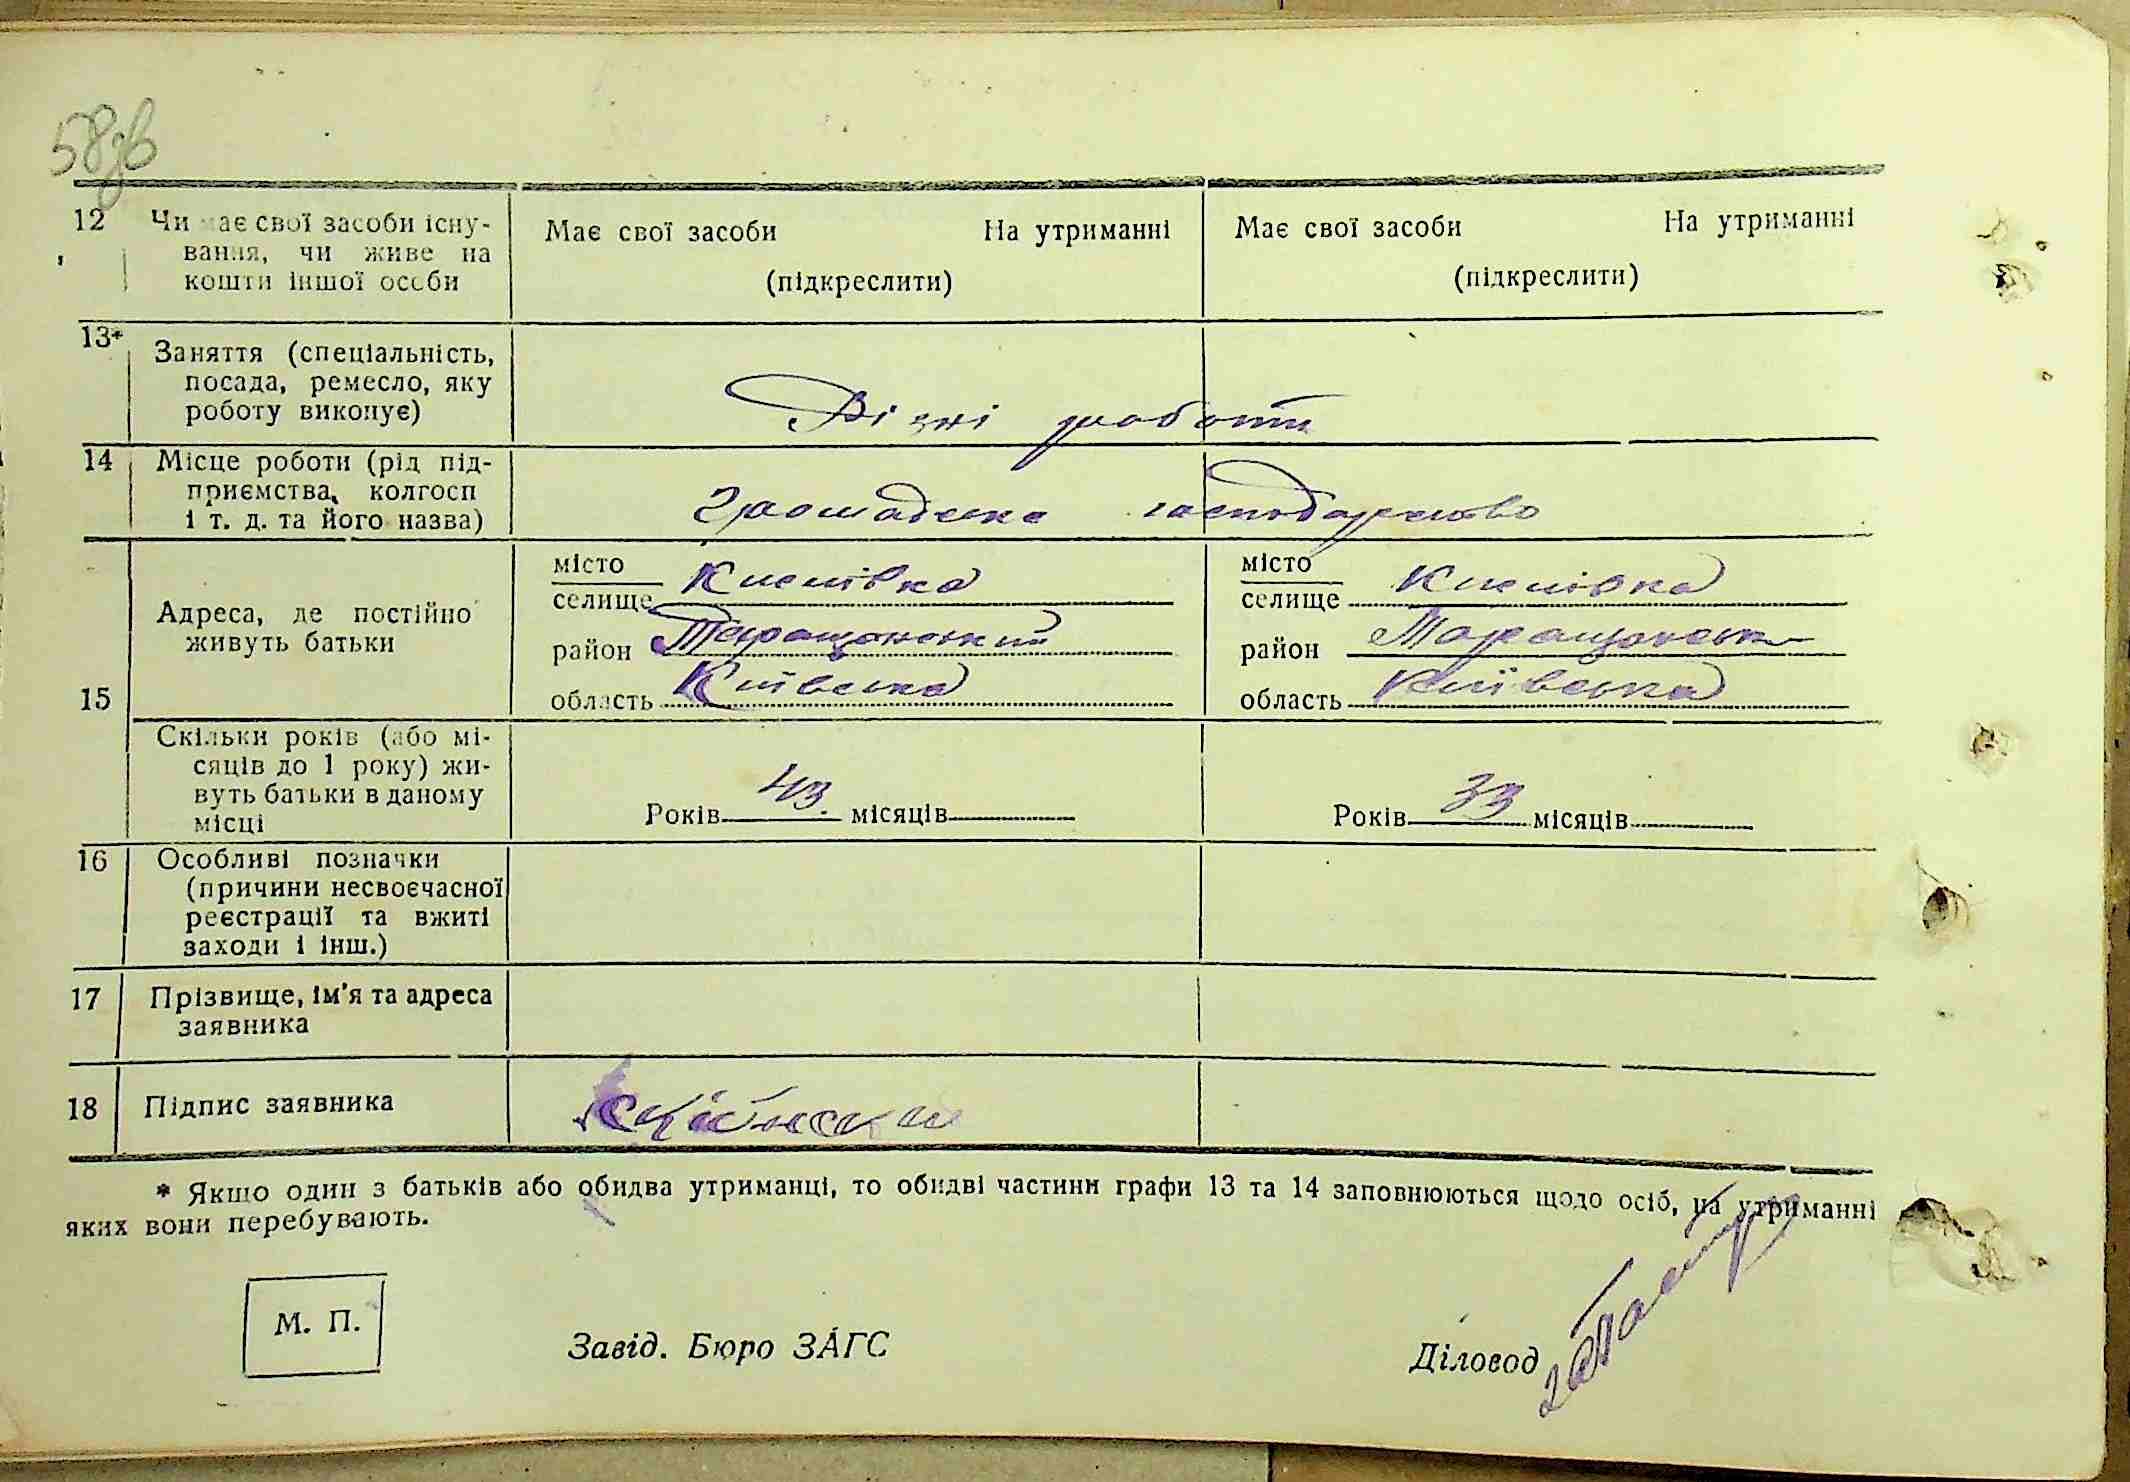 58зв
12 Чи має свої засоби існу-
вання, чи живе на
кошти іншої особи
Має свої засоби На утриманні
(підкреслити)
Має свої засоби На утриманні
(підкреслити)
13* Заняття (спеціальність,
посада, ремесло, яку
роботу виконує)
Різні роботи
14 Місце роботи (рід під-
приємства, колгосп
і т. д. та його назва)
Громадське господарство
15
Адреса, де постійно
живуть батьки
місто
селище Кислівка
район Таращанський
область Київська
місто
селище Кислівка
район Таращанськ
область Київська
Скільки років (або мі-
сяців до 1 року) жи-
вуть батьки в даному
місці
Років 43. місяців
Років 33 місяців
16 Особливі позначки
(причини несвоєчасної
реєстрації та вжиті
заходи і інш.)
17 Прізвище, ім'я та адреса
заявника
18 Підпис заявника
* Якщо один з батьків або обидва утриманці, то обидві частини графи 13 та 14 заповнюються щодо осіб, на утриманні
яких вони перебувають.
М. П.
Завід. Бюро ЗАГС
Діловод